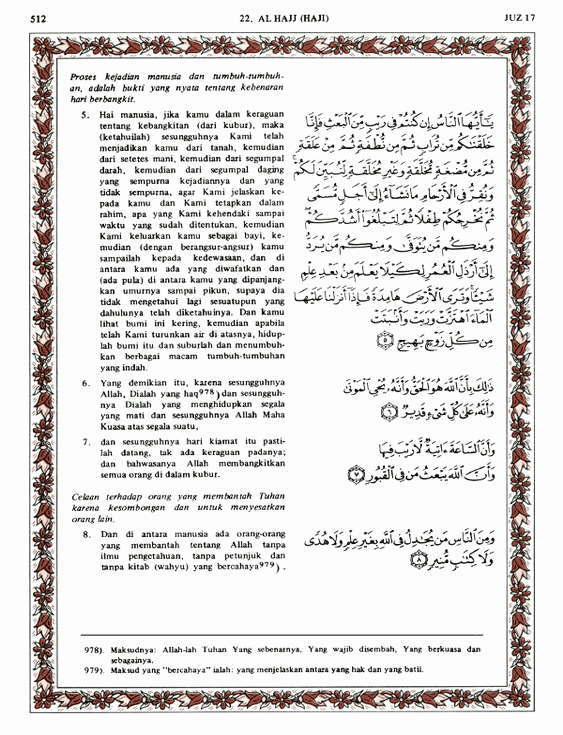 512
22. AL HAJJ (HAJI)
JUZ 17
Proses kejadian manusia dan tumbuh-tumbuh-
an, adalah bukti yang nyata tentang kebenaran
hari berbangkit.
5. Hai manusia, jika kamu dalam keraguan
tentang kebangkitan (dari kubur), maka
(ketahuilah) sesungguhnya Kami telah
menjadikan kamu dari tanah, kemudian
dari setetes mani, kemudian dari segumpal
darah, kemudian dari segumpal daging
yang sempurna kejadiannya dan yang
tidak sempurna, agar Kami jelaskan ke-
pada kamu dan Kami tetapkan dalam
rahim, apa yang Kami kehendaki sampai
waktu yang sudah ditentukan, kemudian
Kami keluarkan kamu sebagai bayi, ke-
mudian (dengan berangsur-angsur) kamu
sampailah kepada kedewasaan, dan di
antara kamu ada yang diwafatkan dan
(ada pula) di antara kamu yang dipanjang-
kan umurnya sampai pikun, supaya dia
tidak mengetahui lagi sesuatupun yang
dahulunya telah diketahuinya. Dan kamu
lihat bumi ini kering, kemudian apabila
telah Kami turunkan air di atasnya, hidup-
lah bumi itu dan suburlah dan menumbuh-
kan berbagai macam tumbuh-tumbuhan
yang indah.
يَـٰٓأَيُّهَا ٱلنَّاسُ إِن كُنتُمْ فِى رَيْبٍ مِّنَ ٱلْبَعْثِ فَإِنَّا
خَلَقْنَـٰكُم مِّن تُرَابٍ ثُمَّ مِن نُّطْفَةٍ ثُمَّ مِنْ عَلَقَةٍ
ثُمَّ مِن مُّضْغَةٍ مُّخَلَّقَةٍ وَغَيْرِ مُخَلَّقَةٍ لِّنُبَيِّنَ لَكُمْ
وَنُقِرُّ فِى ٱلْأَرْحَامِ مَا نَشَآءُ إِلَىٰٓ أَجَلٍ مُّسَمًّى
ثُمَّ نُخْرِجُكُمْ طِفْلًا ثُمَّ لِتَبْلُغُوٓا۟ أَشُدَّكُمْ
وَمِنكُم مَّن يُتَوَفَّىٰ وَمِنكُم مَّن يُرَدُّ
إِلَىٰٓ أَرْذَلِ ٱلْعُمُرِ لِكَيْلَا يَعْلَمَ مِنۢ بَعْدِ عِلْمٍ
شَيْـًٔا وَتَرَى ٱلْأَرْضَ هَامِدَةً فَإِذَآ أَنزَلْنَا عَلَيْهَا
ٱلْمَآءَ ٱهْتَزَّتْ وَرَبَتْ وَأَنۢبَتَتْ
مِن كُلِّ زَوْجٍۭ بَهِيجٍ ٥
6. Yang demikian itu, karena sesungguhnya
Allah, Dialah yang haq978) dan sesungguh-
nya Dialah yang menghidupkan segala
yang mati dan sesungguhnya Allah Maha
Kuasa atas segala suatu,
ذَٰلِكَ بِأَنَّ ٱللَّهَ هُوَ ٱلْحَقُّ وَأَنَّهُۥ يُحْىِ ٱلْمَوْتَىٰ
وَأَنَّهُۥ عَلَىٰ كُلِّ شَىْءٍ قَدِيرٌ ٦
7. dan sesungguhnya hari kiamat itu pasti-
lah datang, tak ada keraguan padanya;
dan bahwasanya Allah membangkitkan
semua orang di dalam kubur.
وَأَنَّ ٱلسَّاعَةَ ءَاتِيَةٌ لَّا رَيْبَ فِيهَا
وَأَنَّ ٱللَّهَ يَبْعَثُ مَن فِى ٱلْقُبُورِ ٧
Celaan terhadap orang yang membantah Tuhan
karena kesombongan dan untuk menyesatkan
orang lain.
8. Dan di antara manusia ada orang-orang
yang membantah tentang Allah tanpa
ilmu pengetahuan, tanpa petunjuk dan
tanpa kitab (wahyu) yang bercahaya979),
وَمِنَ ٱلنَّاسِ مَن يُجَـٰدِلُ فِى ٱللَّهِ بِغَيْرِ عِلْمٍ وَلَا هُدًى
وَلَا كِتَـٰبٍ مُّنِيرٍ ٨
978). Maksudnya: Allah-lah Tuhan Yang sebenarnya, Yang wajib disembah, Yang berkuasa dan
sebagainya.
979). Maksud yang "bercahaya" ialah: yang menjelaskan antara yang hak dan yang batil.